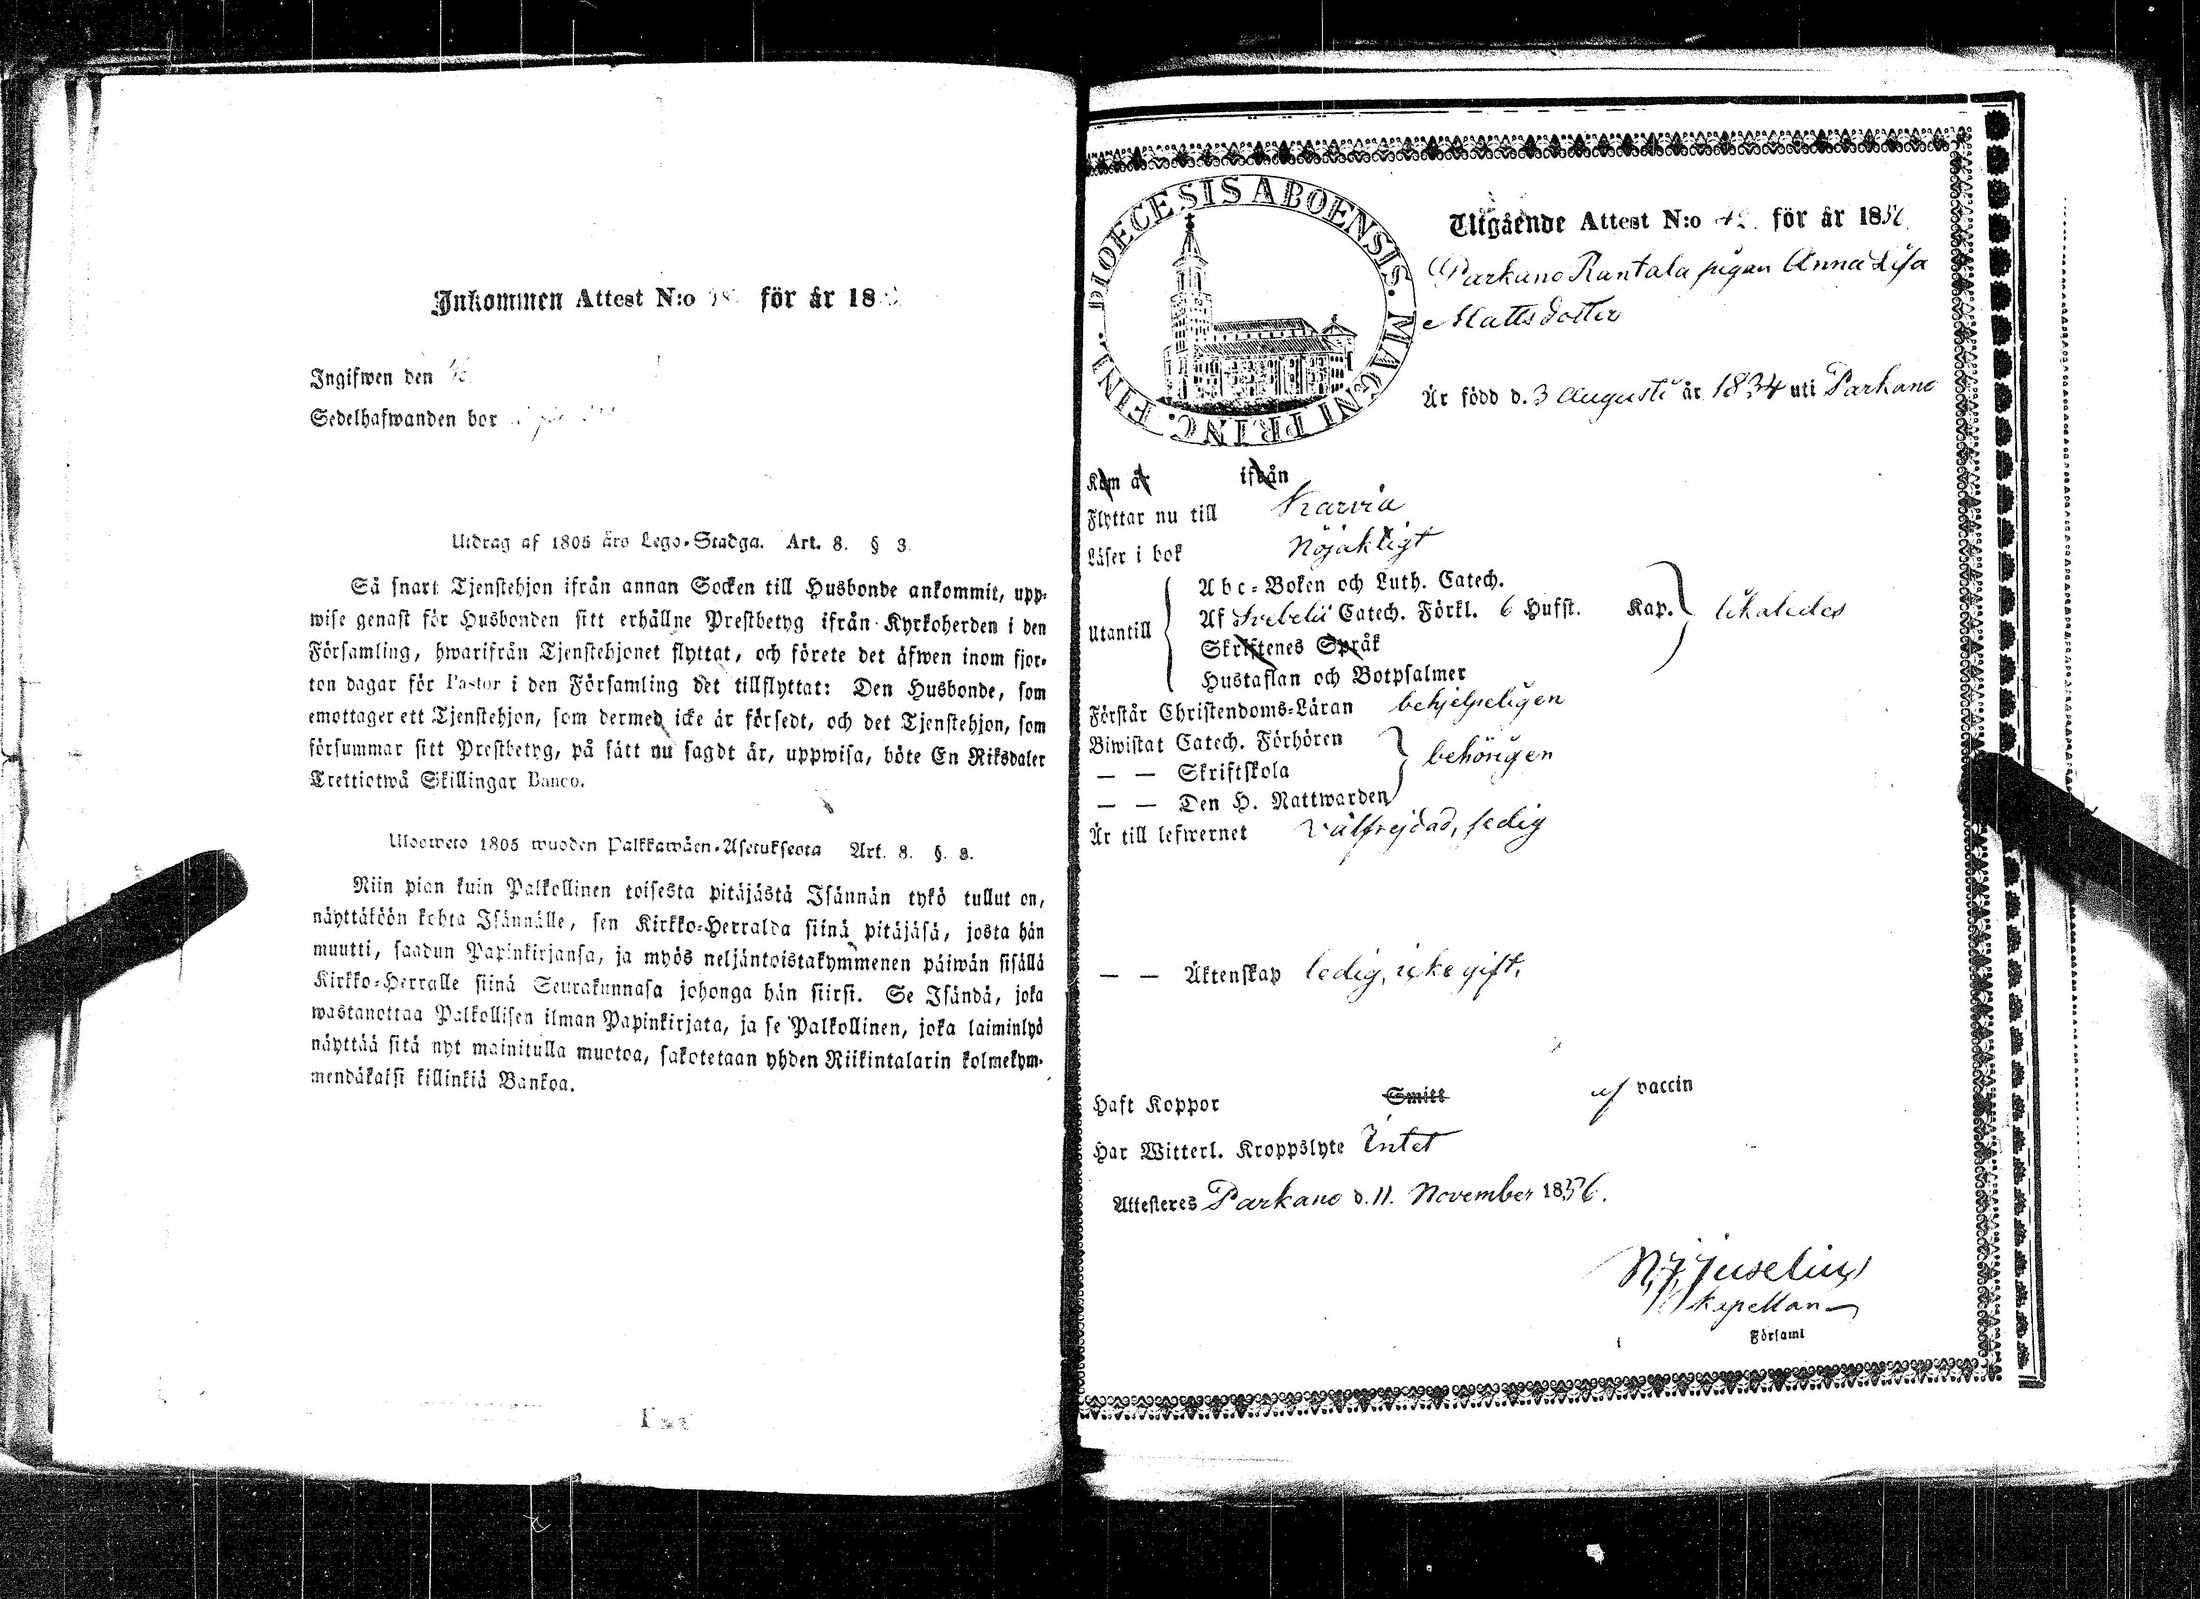 Inkommen Attest N:o för år 18
Ingifwen den
Sedelhafwanden bor
Utdrag af 1805 års Lego-Stadga. Art. 8. § 3.
Så snart Tjenstehjon ifrån annan Socken till Husbonde ankommit, upp-
wise genast för Husbonden sitt erhållne Prestbetyg ifrån Kyrkoherden i den
Församling, hwarifrån Tjenstehjonet flyttat, och förete det äfwen inom fjor-
ton dagar för Pastor i den Församling det tillflyttat: Den Husbonde, som
emottager ett Tjenstehjon, som dermed icke är försedt, och det Tjenstehjon, som
försummar sitt Prestbetyg, på sätt nu sagdt är, uppwisa, böte En Riksdaler
Trettiotwå Skillingar Banco.
Ulosweto 1805 wuoden Palkkawäen-Asetuksesta Art. 8. §. 3.
Niin pian kuin Palkollinen toisesta pitäjästä Isännän tykö tullut on,
näyttäköön kohta Isännälle, sen Kirkko-Herralda siinä pitäjäsä, josta hän
muutti, saadun Papinkirjansa, ja myös neljäntoistakymmenen päiwän sisällä
Kirkko-Herralle siinä Seurakunnasa johonga hän siirsi. Se Isändä, joka
wastanottaa Palkollisen ilman Papinkirjata, ja se Palkollinen, joka laiminlyö
näyttää sitä nyt mainitulla muotoa, sakotetaan yhden Riikintalarin kolmekym-
mendäkaksi killinkiä Bankoa.
DIOECESIS ABOENSIS. MAGNI PRINC. FINL.
Utgående Attest N:o 42. för år 1856
Parkano Rantala pigan Anna Lisa
Mattsdotter
Är född d. 3 Augusti år 1834 uti Parkano
Kom år ifrån
Flyttar nu till Karvia
Läser i bok Nöjaktigt
Abc-Boken och Luth. Catech.
Utantill Af Svebelii Catech. Förkl. 6 Hufst. Kap. likaledes
Skriftenes Språk
Hustaflan och Botpsalmer
Förstår Christendoms-Läran behjelpeligen
Biwistat Catech. Förhören
— — Skriftskola behörigen
— — Den H. Nattwarden
Är till lefwernet välfrejdad, ledig
— — Äktenskap ledig, icke gift.
Haft Koppor Smitt af vaccin
Har Witterl. Kroppslyte Intet
Attesteres Parkano d. 11. November 1856.
N. J. Juselius
Kapellan
i Församl